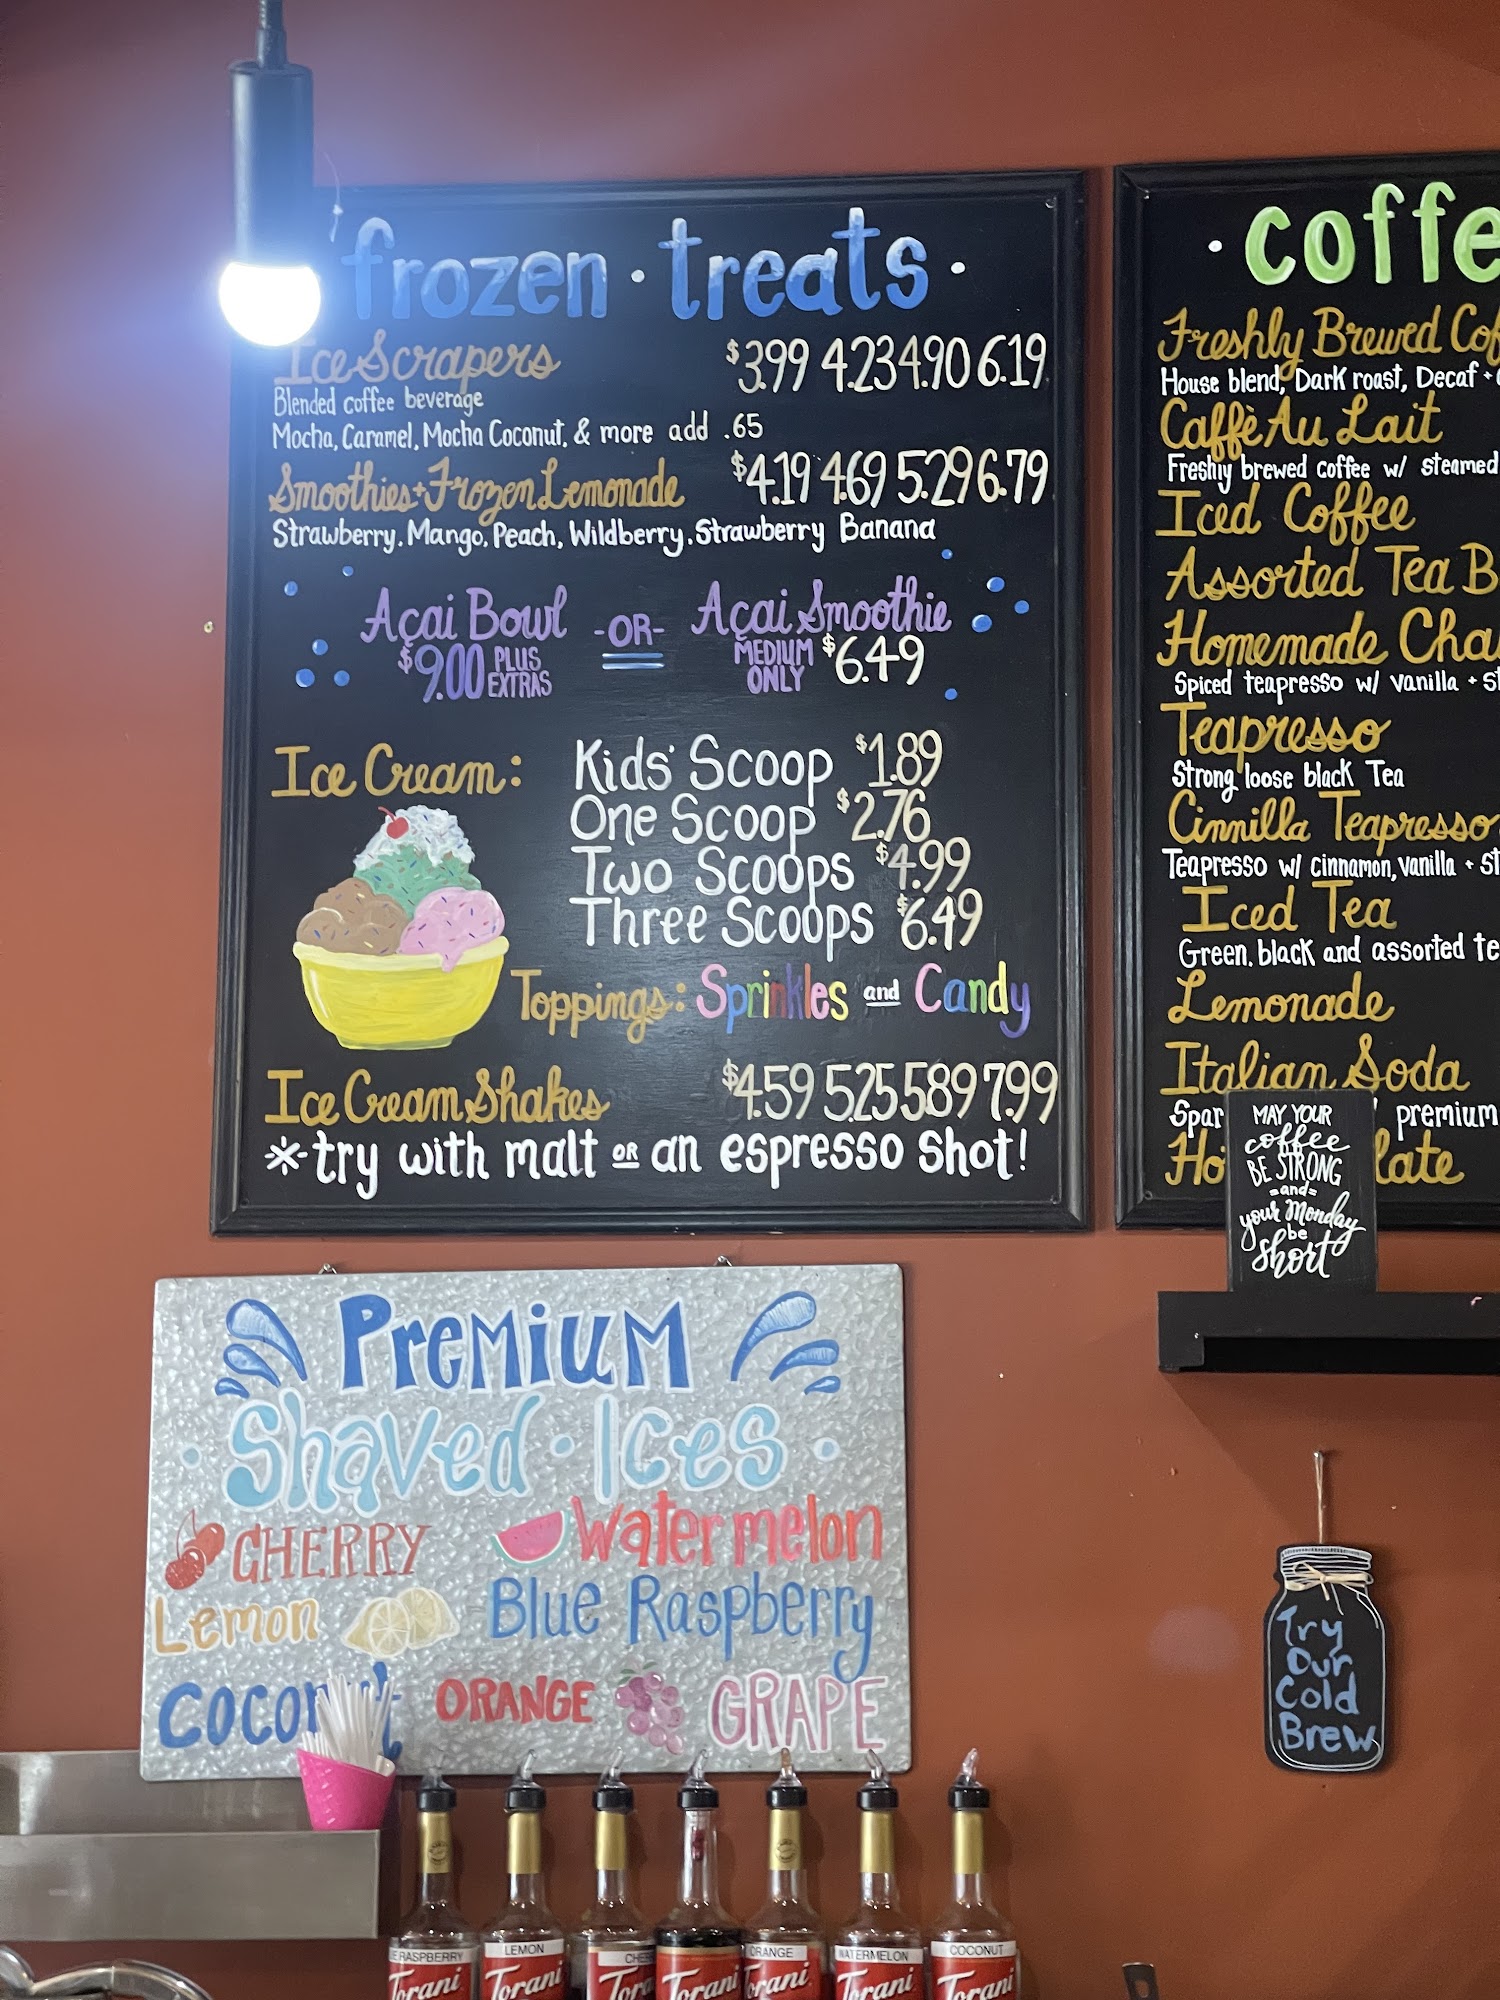 frozen · treats ·
Ice Scrapers $3.99 4.23 4.90 6.19
Blended coffee beverage
Mocha, Caramel, Mocha Coconut, & more add .65
Smoothies + Frozen Lemonade $4.19 4.69 5.29 6.79
Strawberry, Mango, Peach, Wildberry, Strawberry Banana
Açai Bowl -OR- Açai Smoothie
$9.00 PLUS EXTRAS MEDIUM ONLY $6.49
Ice Cream: Kids' Scoop $1.89
One Scoop $2.76
Two Scoops $4.99
Three Scoops $6.49
Toppings: Sprinkles and Candy
Ice Cream Shakes $4.59 5.25 5.89 7.99
*try with malt OR an espresso shot!
· coffe
Freshly Brewed Cof
House blend, Dark roast, Decaf +
Caffè Au Lait
Freshly brewed coffee w/ steamed
Iced Coffee
Assorted Tea B
Homemade Cha
Spiced teapresso w/ vanilla + st
Teapresso
Strong loose black Tea
Cinnilla Teapresso
Teapresso w/ cinnamon, vanilla + st
Iced Tea
Green, black and assorted te
Lemonade
Italian Soda
Spar premium
Ho late
MAY YOUR
coffee
BE STRONG
=and=
your Monday
be
short
Premium
· Shaved · Ices ·
CHERRY Watermelon
Lemon Blue Raspberry
Coconut ORANGE GRAPE
Try
Our
Cold
Brew
E RASPBERRY LEMON CHE ORANGE WATERMELON COCONUT
Torani Torani Tora Torani Torani Torani Torani